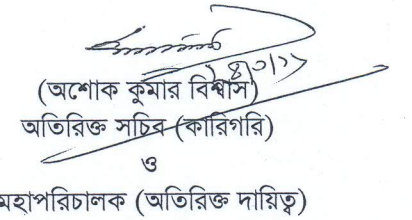 (অশোক কুমার বিশ্বাস)
অতিরিক্ত সচিব (কারিগরি)
ও
মহাপরিচালক (অতিরিক্ত দায়িত্ব)